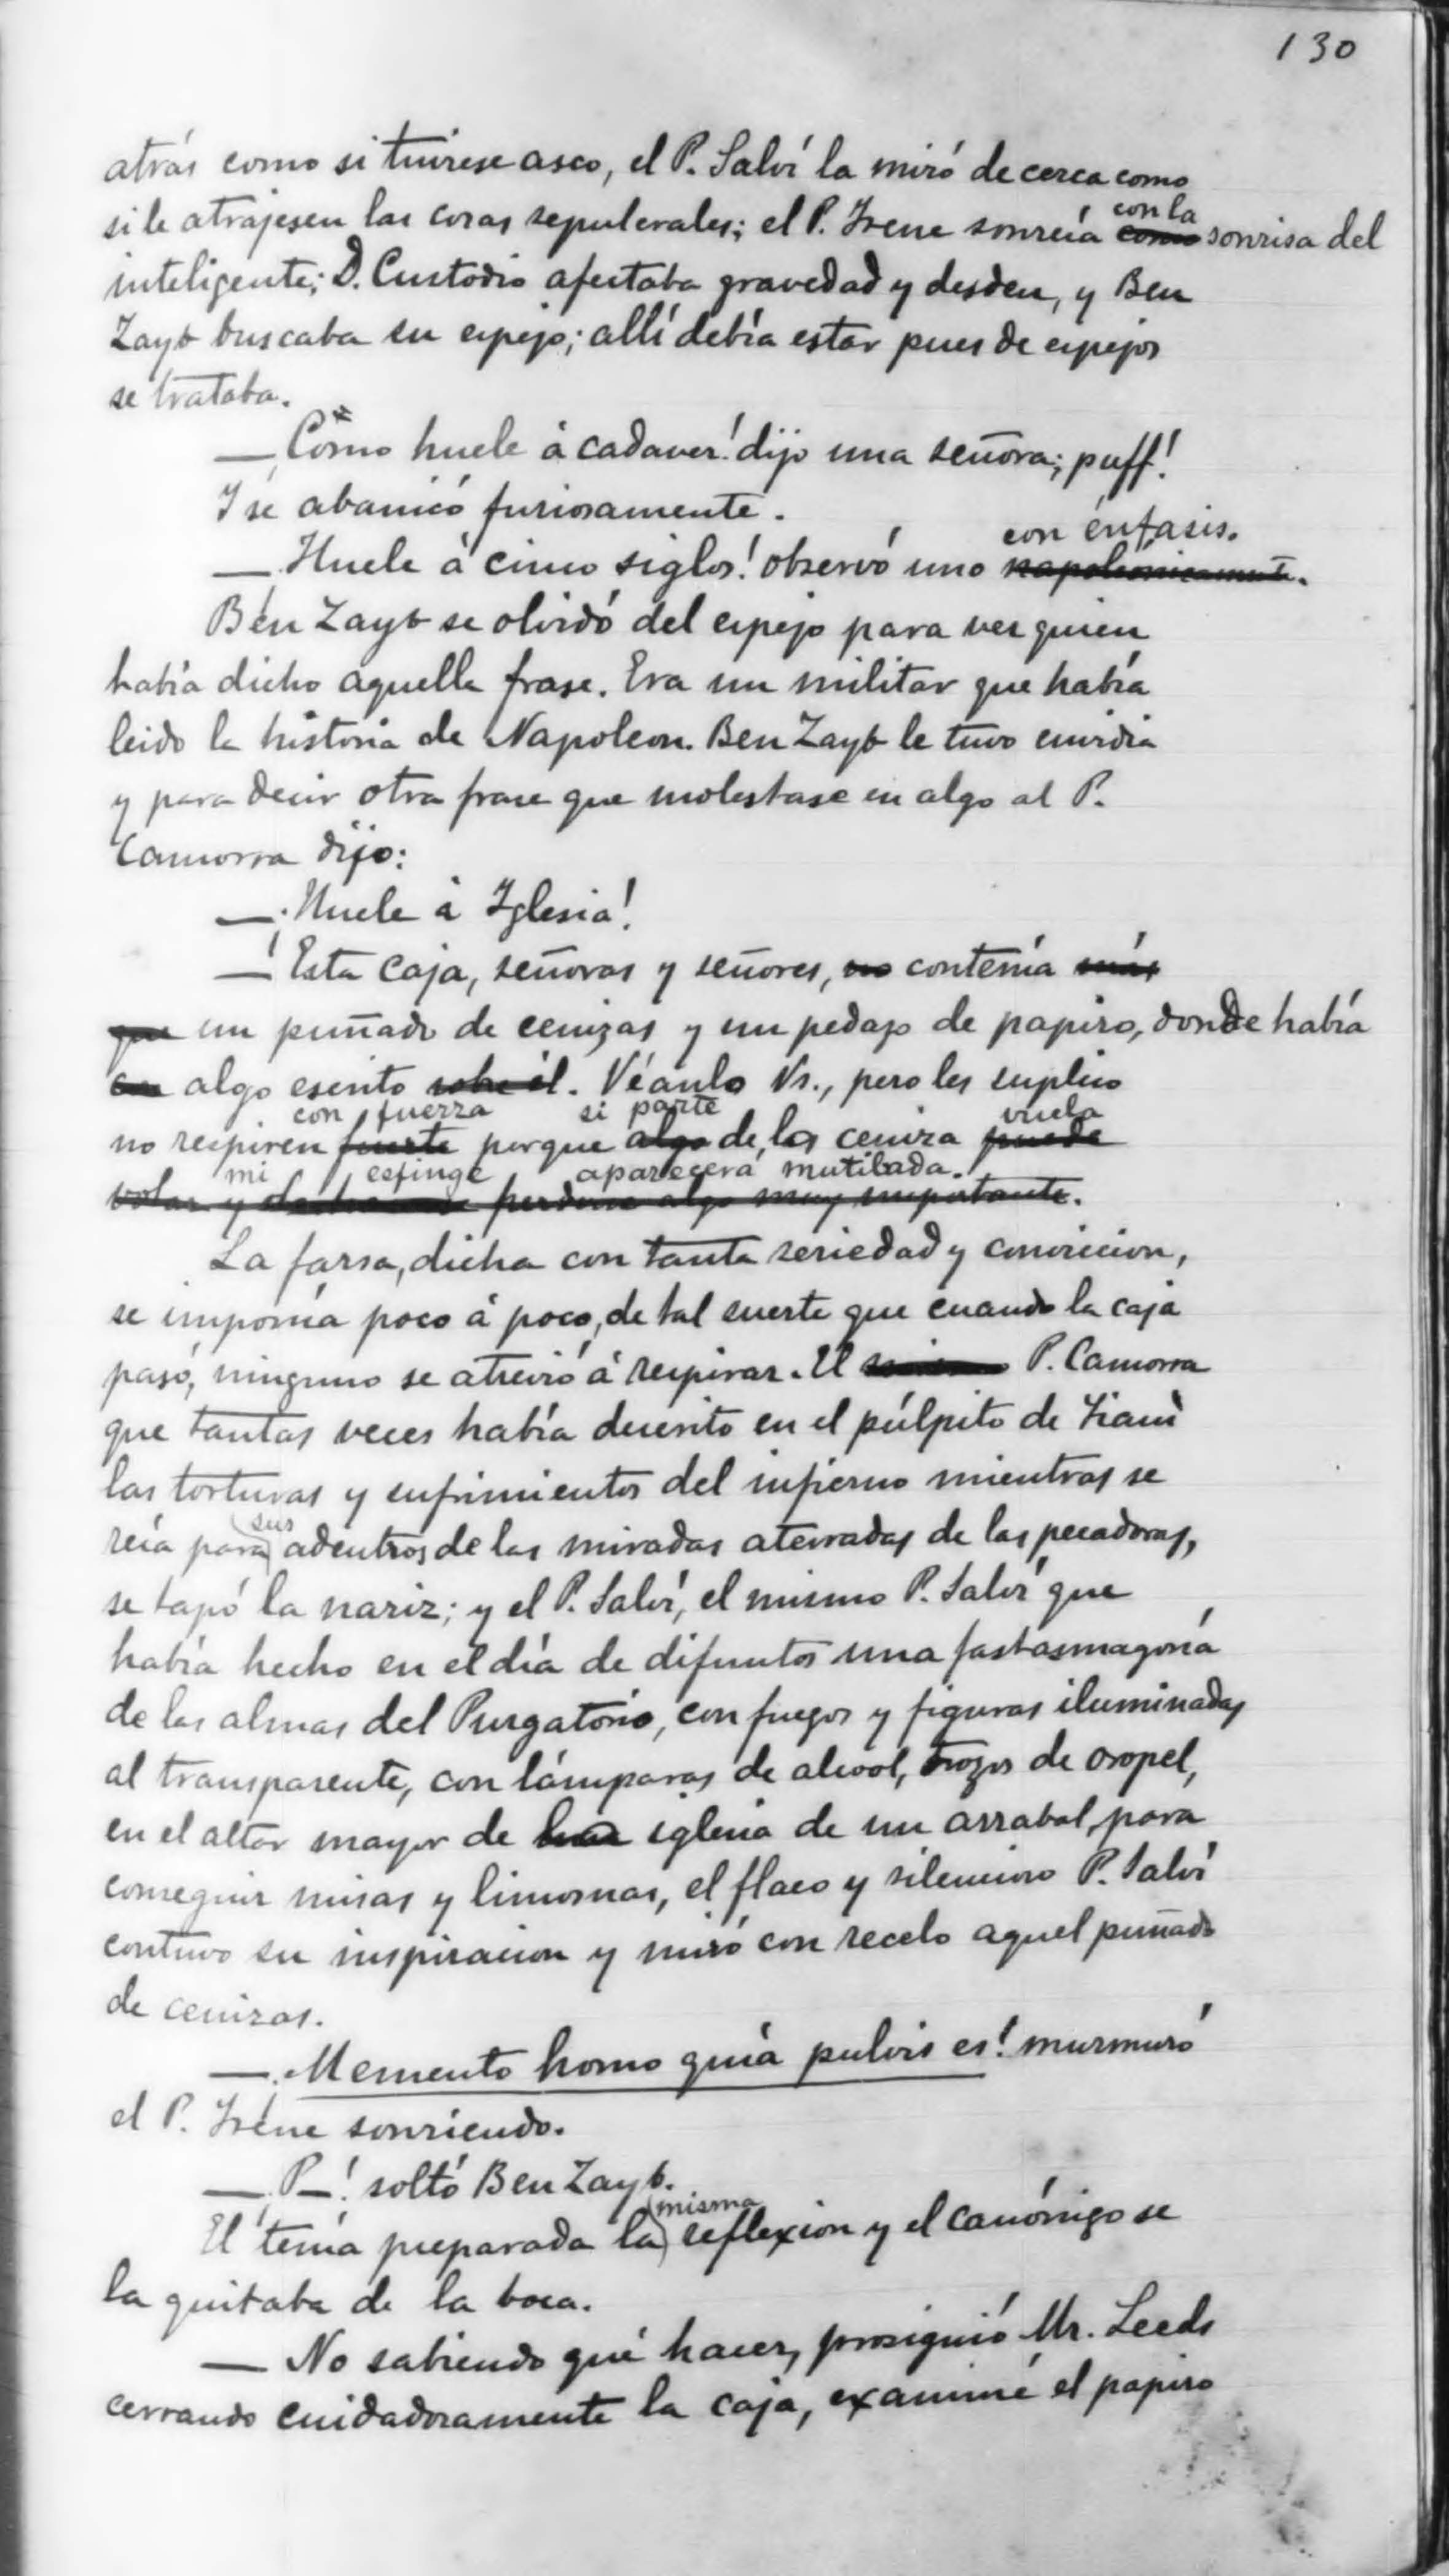 130
atrás como si tuviese asco, el P. Salví la miró de cerca como
si le atrajesen las cosas sepulcrales; el P. Irene sonreía como con la sonrisa del
inteligente; D. Custodio afectaba gravedad y desden, y Ben
Zayb buscaba su espejo; allí debía estar pues de espejos
se trataba.
— ¡Cómo huele á cadaver! dijo una señora; puff!
Y se abanicó furiosamente.
— ¡Huele á cinco siglos! observó uno napoleónicamente. con énfasis.
Ben Zayb se olvidó del espejo para ver quien
había dicho aquella frase. Era un militar que había
leido la historia de Napoleon. Ben Zayb le tuvo envidia
y para decir otra frase que molestase en algo al P.
Camorra dijo:
— ¡Huele á Iglesia!
— Esta caja, señoras y señores, no contenía más
que un puñado de cenizas y un pedazo de papiro, donde había
con algo escrito sobre él. Véanlo Vs., pero les suplico
con fuerza si parte vuela
no respiren fuerte porque algo de la ceniza puede
mi esfinge aparecerá mutilada.
volar y perderse algo muy importante.
La farsa, dicha con tanta seriedad y conviccion,
se imponía poco á poco, de tal suerte que cuando la caja
pasó, ninguno se atrevió á respirar. El P. Camorra
que tantas veces había descrito en el púlpito de Tianì
las torturas y sufrimientos del infierno mientras se
reía para sus adentros de las miradas aterradas de las pecadoras,
se tapó la nariz; y el P. Salví, el mismo P. Salví que
había hecho en el día de difuntos una fastasmagoría
de las almas del Purgatorio, con fuegos y figuras iluminadas
al transparente, con lámparas de alcool, trozos de oropel,
en el altar mayor de la iglesia de un arrabal, para
conseguir misas y limosnas, el flaco y silencioso P. Salví
contuvo su inspiracion y miró con recelo aquel puñado
de cenizas.
— ¡Memento homo quià pulvis es! murmuró
el P. Irene sonriendo.
— ¡P—! soltó Ben Zayb.
misma
El tenía preparada la reflexion y el canónigo se
la quitaba de la boca.
— No sabiendo qué hacer, prosiguió Mr. Leeds
cerrando cuidadosamente la caja, examiné el papiro